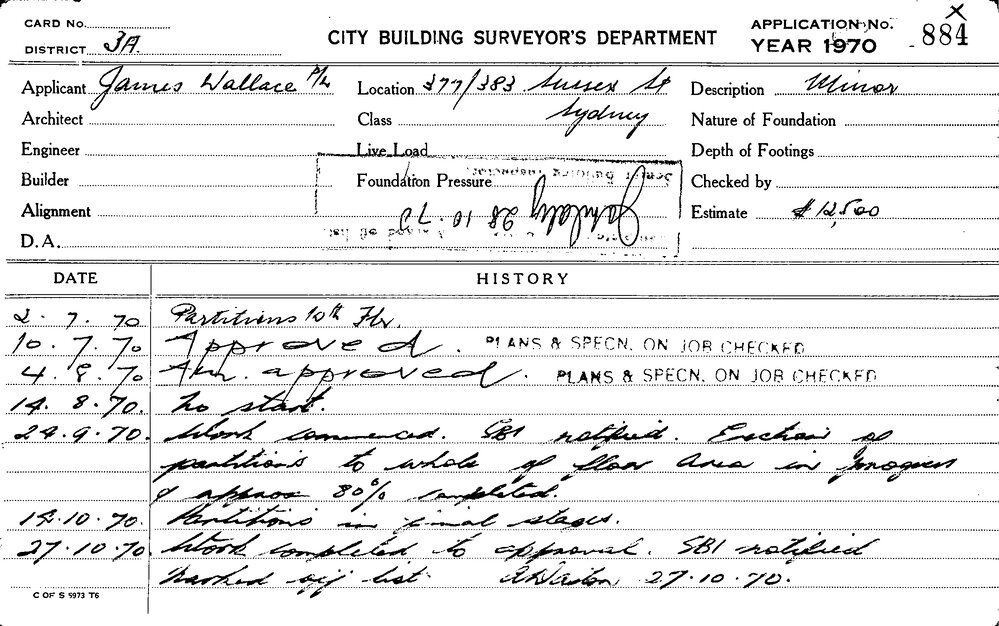 CARD No.
DISTRICT 3A
CITY BUILDING SURVEYOR'S DEPARTMENT
APPLICATION No. 884 X
YEAR 1970
Applicant James Wallace P/L
Location 377/383 Sussex St
Sydney
Description Minor
Architect
Class
Nature of Foundation
Engineer
Live Load
Depth of Footings
Builder
Foundation Pressure
Checked by
Alignment
Estimate $12,500
D.A.
Senior Building Inspector
28.10.70
DATE HISTORY
2.7.70 Partitions 10th Flr.
10.7.70 Approved. PLANS & SPECN. ON JOB CHECKED
4.8.70 Am. approved. PLANS & SPECN. ON JOB CHECKED
14.8.70. No start.
24.9.70. Work commenced. SBI notified. Erection of
partitions to whole of floor area in progress
& approx 80% completed.
14.10.70. Partitions in final stages.
27.10.70 Work completed to approval. SBI notified
Marked off list 27.10.70.
C OF S 5973 T6